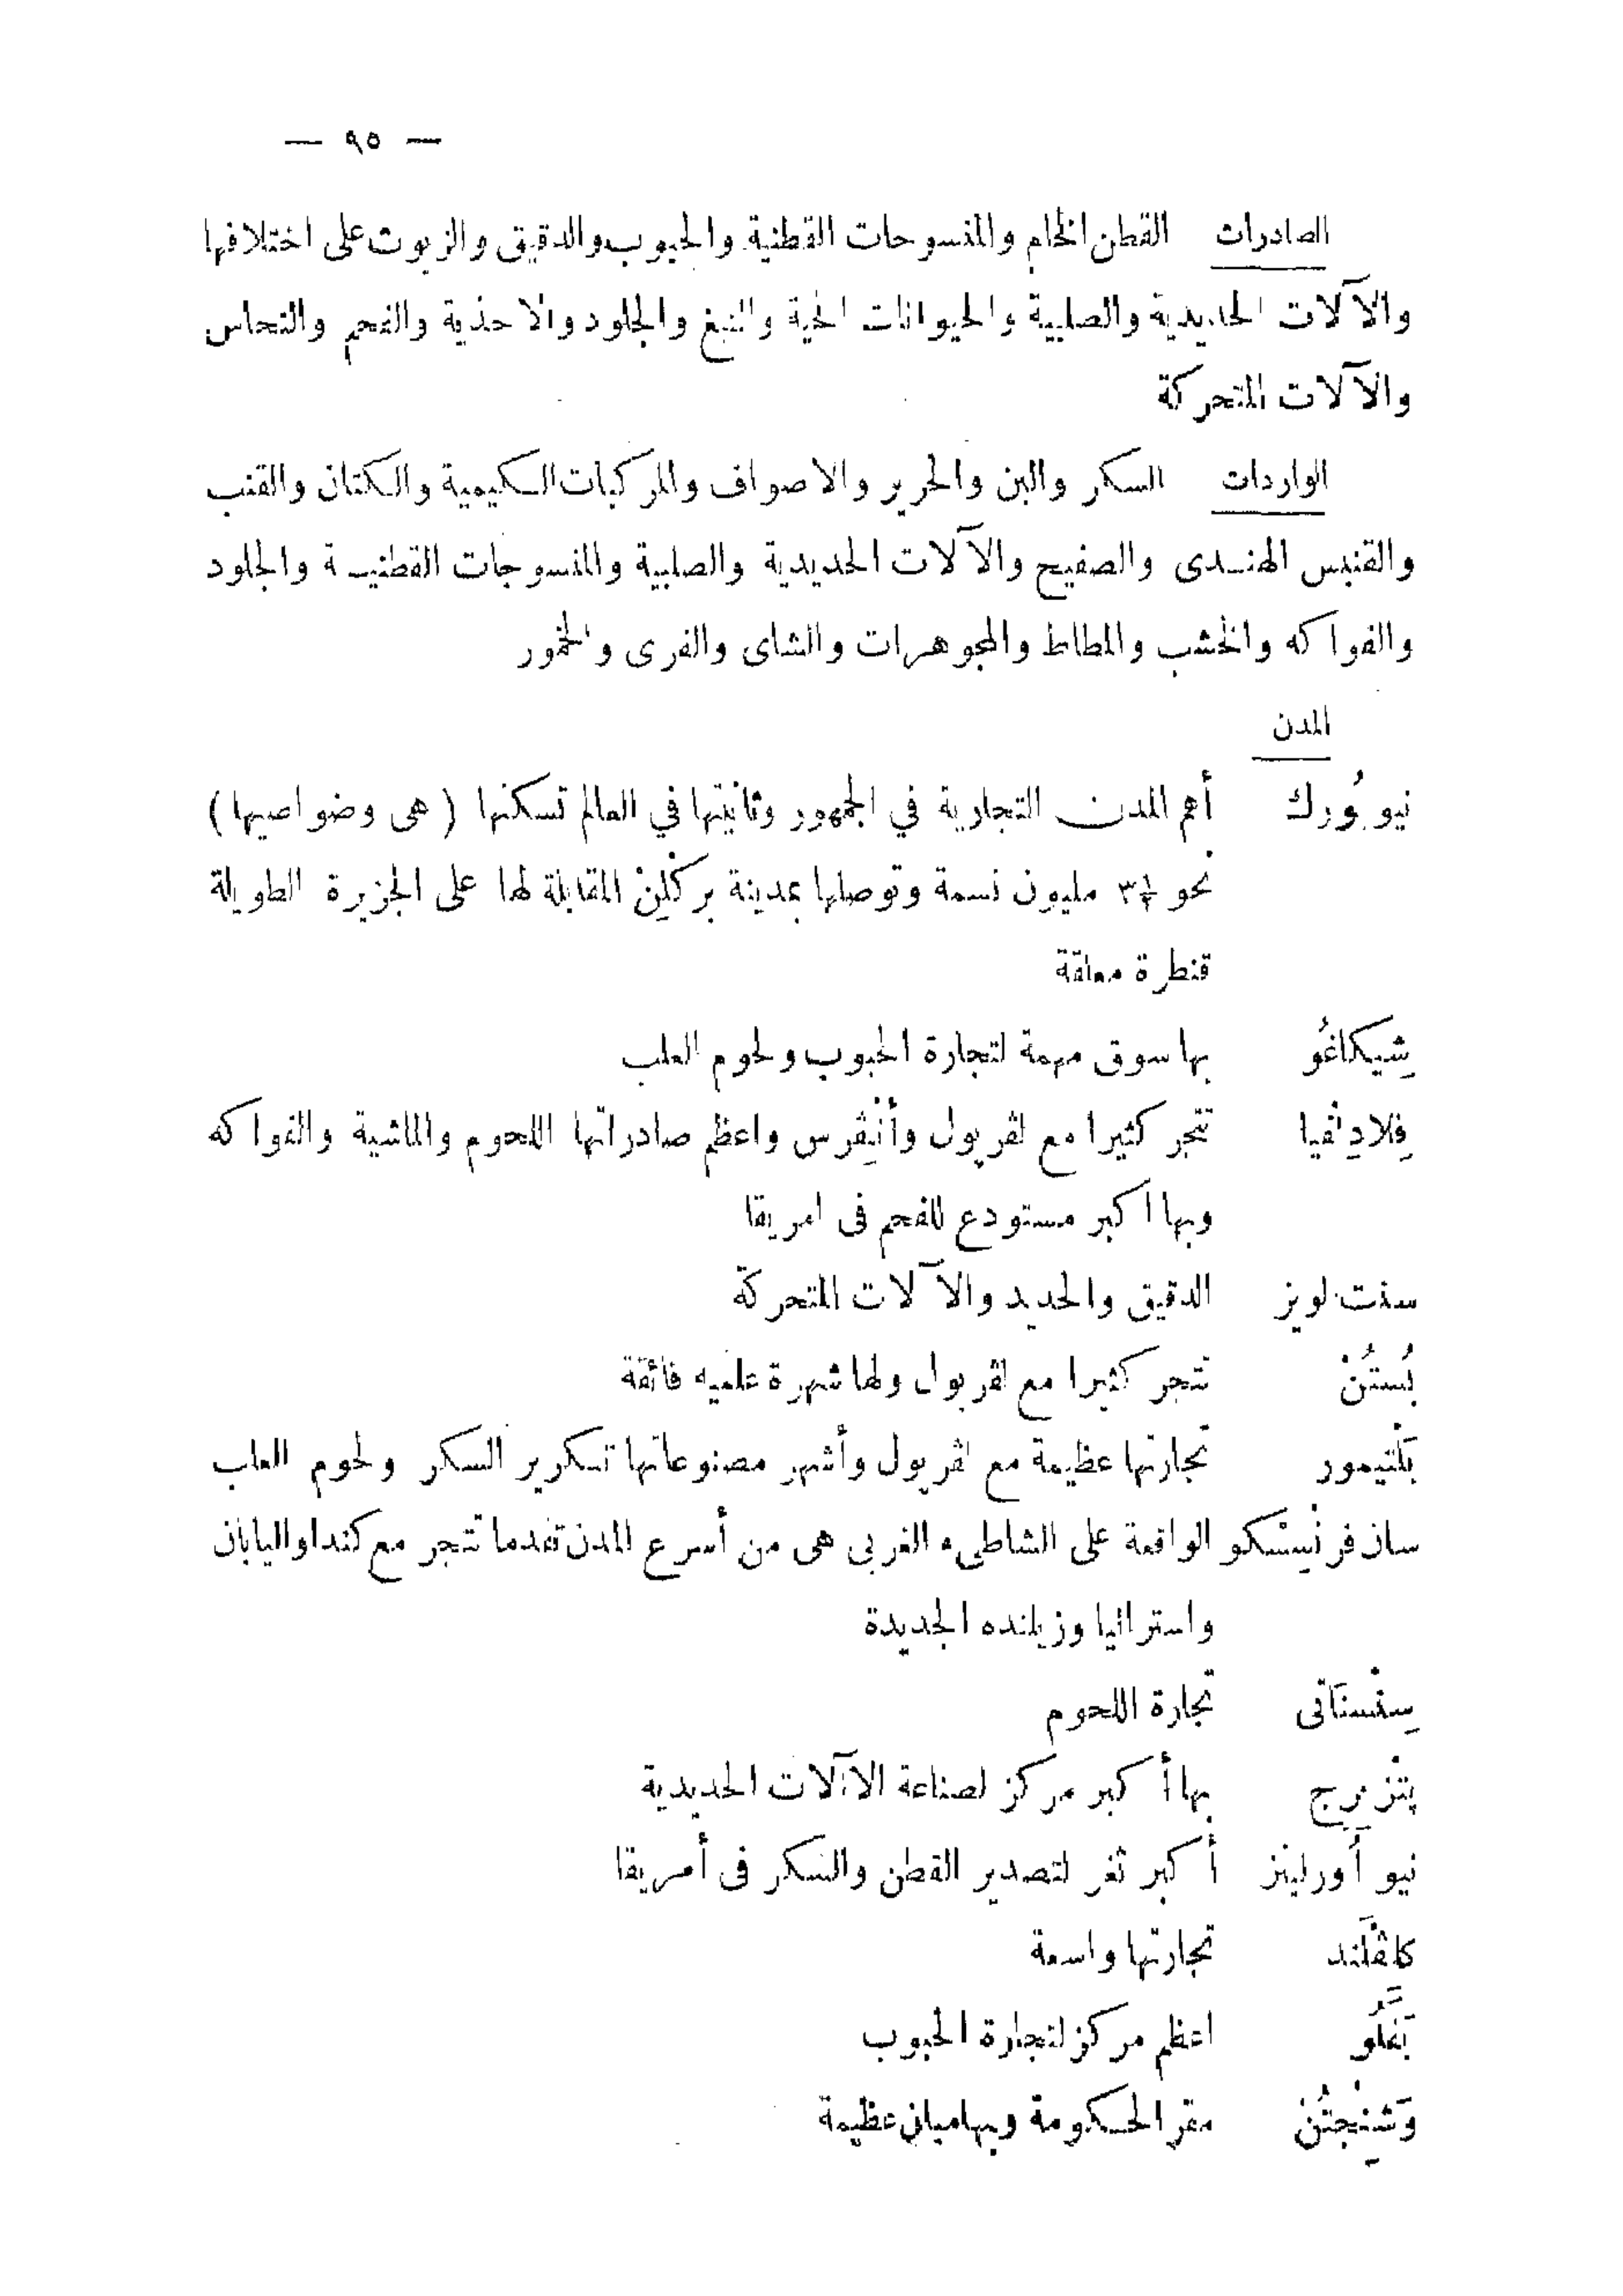 — ٩٥ —
الصادرات القطن الخام والمنسوجات القطنية والحبوب والدقيق والزيوت على اختلافها
والآلات الحديدية والصلبية والحيوانات الحية والتبغ والجلود والاحذية والفحم والنحاس
والآلات المتحركة
الواردات السكر والبن والحرير والاصواف والمركبات الكيمية والكتان والقنب
والقنبس الهندى والصفيح والآلات الحديدية والصلبية والمنسوجات القطنية والجلود
والفواكه والخشب والمطاط والمجوهرات والشاى والفرى والخمور
المدن
نيو يُورك أهم المدن التجارية في الجمهور وثانيتها في العالم تسكنها ( هى وضواصيها )
نحو ٣½ مليون نسمة وتوصلها بمدينة بركْلِنْ المقابلة لها على الجزيرة الطويلة
قنطرة معلقة
شِيكاغُو بها سوق مهمة لتجارة الحبوب ولحوم العلب
فِلادِلْفيا تتجر كثيرا مع لڤربول وأنْڤِرس واعظم صادراتها اللحوم والماشية والفواكه
وبها اكبر مستودع للفحم فى امريقا
سنت لويز الدقيق والحديد والآلات المتحركة
بُستُنْ تتجر كثيرا مع لڤربول ولها شهرة علميه فائقة
بَلْتيمور تجارتها عظيمة مع لڤربول وأشهر مصنوعاتها تسكرير السكر ولحوم العلب
سان فرنْسِسْكو الواقعة على الشاطىء الغربى هى من أسرع المدن تقدما تتجر مع كندا واليابان
واستراليا وزيلنده الجديدة
سِنْسنَاتى تجارة اللحوم
پِتْزبرج بها أكبر مركز لصناعة الآلات الحديدية
نيو أُورلينز أكبر ثغر لتصدير القطن والسكر فى أمريقا
كلڤلَند تجارتها واسعة
بَفَلُو اعظم مركز لتجارة الحبوب
وَشِنْجتُنْ مقر الحكومة وبها مبانى عظيمة